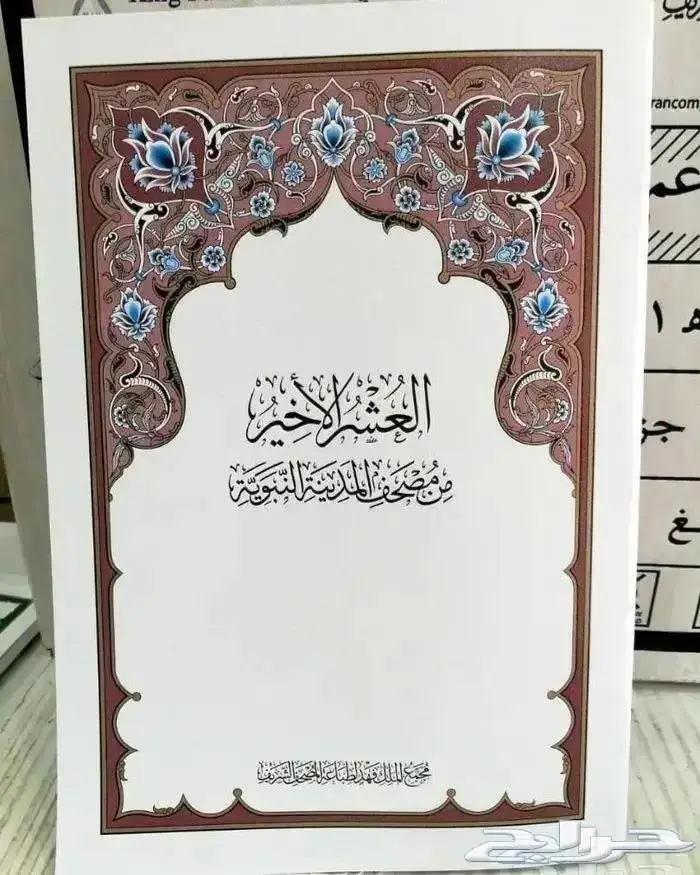 العُشْرُ الأَخِيرُ
مِن مُصْحَفِ المَدِينَةِ النَّبَوِيَّةِ
مُجَمَّع المَلِك فَهْد لِطِبَاعَةِ المُصْحَفِ الشَّرِيف
rancom
عم
ه ١
جز
غ
حراج